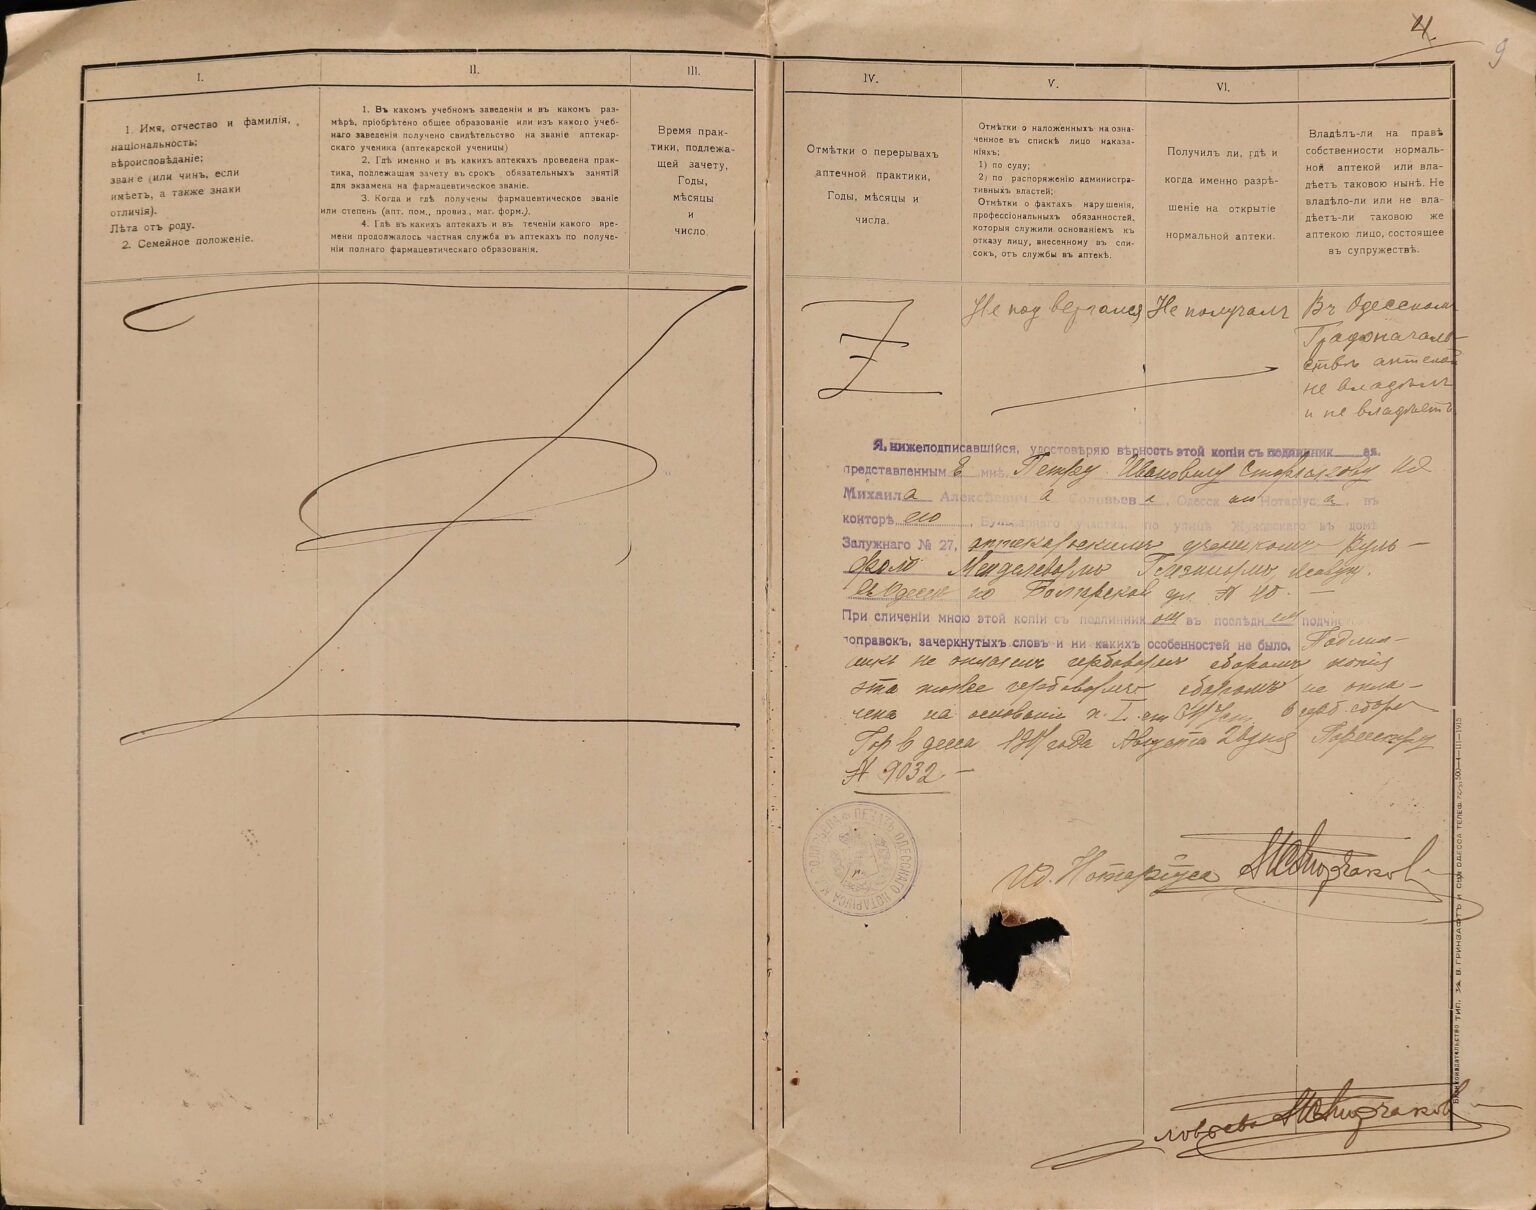 4.
9
I.
1. Имя, отчество и фамилія,
національность;
вѣроисповѣданіе;
званіе (или чинъ, если
имѣетъ, а также знаки
отличія).
Лѣта отъ роду.
2. Семейное положеніе.
II.
1. Въ каком учебном заведеніи и в каком раз-
мѣрѣ, пріобрѣтено общее образованіе или изъ какого учеб-
наго заведенія получено свидѣтельство на званіе аптекар-
скаго ученика (аптекарской ученицы)
2. Гдѣ именно и в какихъ аптекахъ проведена прак-
тика, подлежащая зачету въ срок обязательных занятій
для экзамена на фармацевтическое званіе.
3. Когда и гдѣ получены фармацевтическое званіе
или степень (апт. пом., провиз., маг. форм.).
4. Гдѣ въ какихъ аптекахъ и въ теченіи какого вре-
мени продолжалось частная служба въ аптекахъ по получе-
ніи полнаго фармацевтическаго образованія.
III.
Время прак-
тики, подлежа-
щей зачету,
Годы,
мѣсяцы
и
число.
IV.
Отмѣтки о перерывахъ
аптечной практики,
Годы, мѣсяцы и
числа.
V.
Отмѣтки о наложенныхъ на озна-
ченное въ спискѣ лицо наказа-
ніяхъ;
1) по суду;
2) по распоряженію администра-
тивныхъ властей;
Отмѣтки о фактахъ нарушенія,
профессіональныхъ обязанностей,
которыя служили основаніемъ къ
отказу лицу, внесенному въ спи-
сокъ, отъ службы въ аптекѣ.
VI.
Получилъ ли, гдѣ и
когда именно разрѣ-
шеніе на открытіе
нормальной аптеки.
Владѣлъ-ли на правѣ
собственности нормаль-
ной аптекой или вла-
дѣетъ таковою нынѣ. Не
владѣло-ли или не вла-
дѣетъ-ли таковою же
аптекою лицо, состоящее
въ супружествѣ.
Не подвергался
Не получалъ
Въ Одесскомъ
Градоначаль-
ствѣ аптекой
не владѣлъ
и не владѣетъ
Я, нижеподписавшійся, удостовѣряю вѣрность этой копіи съ подлинникомъ ея,
представленнымъ мнѣ, Петру Ивановичу Сторчакову ид.
Михаила Алексѣевича Соловьева, Одесскаго Нотаріуса, въ
конторѣ его, Бульварнаго участка, по улицѣ Жуковскаго въ домѣ
Залужнаго № 27, аптекарскимъ ученикомъ Вуль-
фомъ Менделевымъ
въ Одессѣ по Болгарской ул. № 40.
При сличеніи мною этой копіи съ подлинникомъ въ послѣднемъ подчистокъ
поправокъ, зачеркнутых словъ и ни каких особенностей не было. Подлин-
никъ не оплаченъ гербовымъ сборомъ копія
эта также гербовымъ сборомъ не опла-
чена на основаніи
Гор. Одесса года Августа 20 дня По реестру
№ 9032.
ПЕЧАТЬ ОДЕССКАГО НОТАРІУСА М. А. СОЛОВЬЕВА
Ид. Нотаріуса
Соловьева
ТИП. Эд. В. ГРИНБАФТЪ И СНЪ ОДЕССА ТЕЛЕФ. III—1915